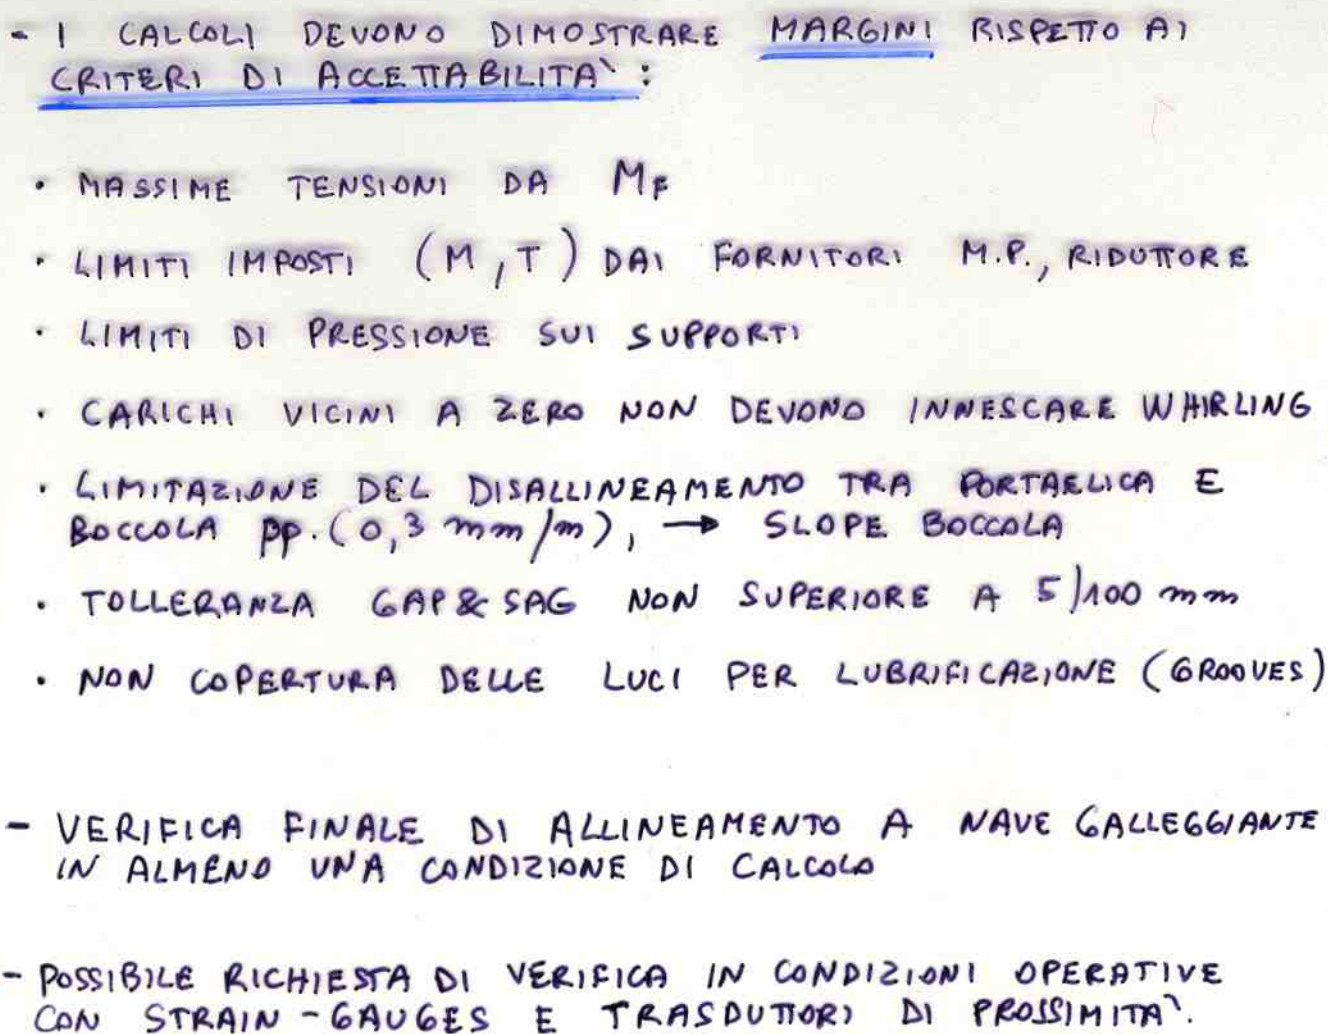 - I CALCOLI DEVONO DIMOSTRARE MARGINI RISPETTO AI
CRITERI DI ACCETTABILITA` :
· MASSIME TENSIONI DA MF
· LIMITI IMPOSTI (M, T) DAI FORNITORI M.P., RIDUTTORE
· LIMITI DI PRESSIONE SUI SUPPORTI
· CARICHI VICINI A ZERO NON DEVONO INNESCARE WHIRLING
· LIMITAZIONE DEL DISALLINEAMENTO TRA PORTAELICA E
BOCCOLA pp. (0,3 mm/m), → SLOPE BOCCOLA
· TOLLERANZA GAP & SAG NON SUPERIORE A 5/100 mm
· NON COPERTURA DELLE LUCI PER LUBRIFICAZIONE (GROOVES)
- VERIFICA FINALE DI ALLINEAMENTO A NAVE GALLEGGIANTE
IN ALMENO UNA CONDIZIONE DI CALCOLO
- POSSIBILE RICHIESTA DI VERIFICA IN CONDIZIONI OPERATIVE
CON STRAIN-GAUGES E TRASDUTTORI DI PROSSIMITA`.